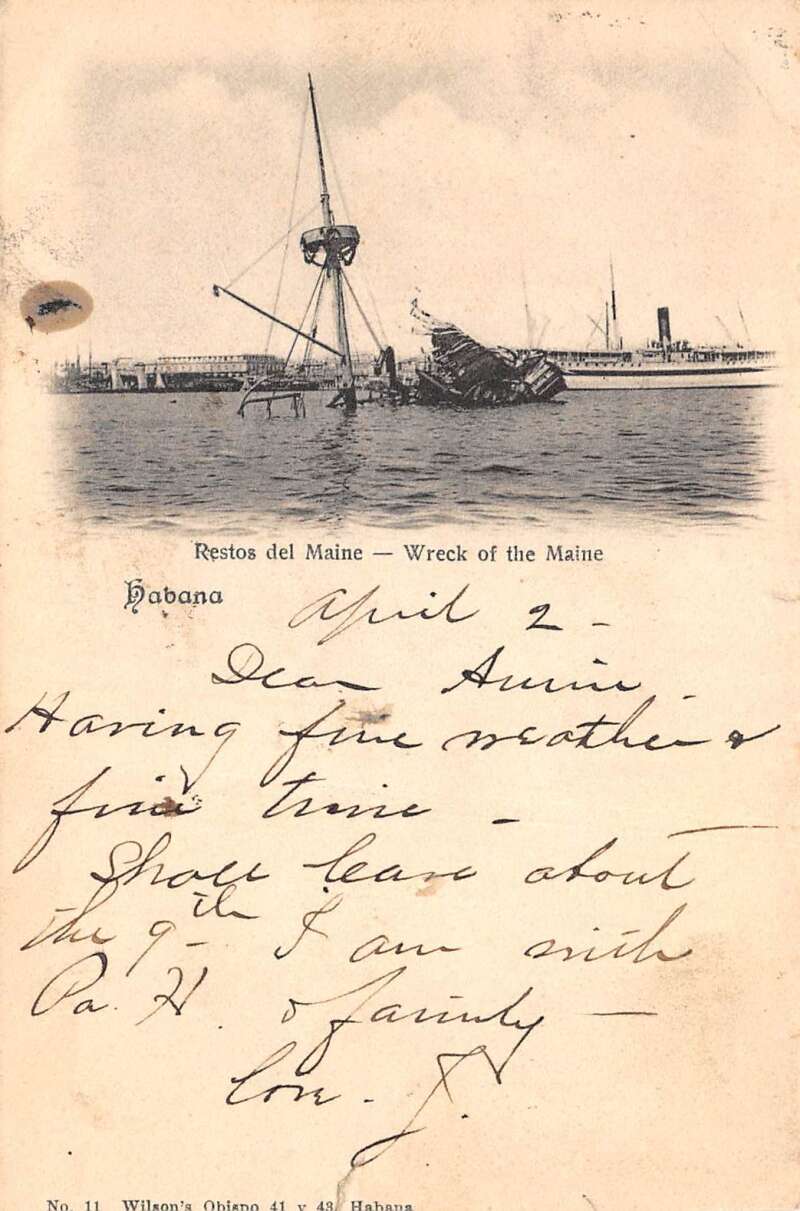 Restos del Maine — Wreck of the Maine
Habana
April 2 -
Dear Annie -
Having fine weather &
fine time -
Shall leave about
the 9th I am with
Pa. H. & family —
Love - J.
No. 11 Wilson's Obispo 41 y 43, Habana